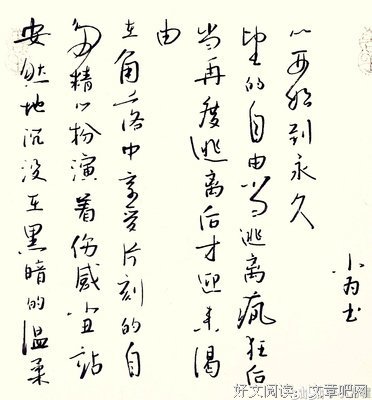 安然地沉没在黑暗的温柔
精心扮演着伤感小丑站
在角落中享受片刻的自
由
当再度逃离后才迎来渴
望的自由当逃离疯狂后
到永久
小为书
好文阅读：文章吧网